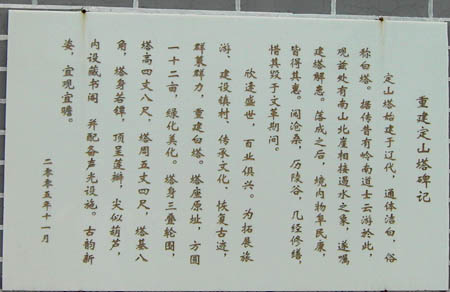 重建定山塔碑记
定山塔始建于辽代，通体洁白，俗
称白塔。据传昔有岭南道士云游於此，
观兹处有南山北崖相接遇水之象，遂嘱
建塔解患。落成之后，境内物阜民康，
皆得其惠。阅沧桑，历陵谷，几经修缮，
惜其毁于文革期间。
欣逢盛世，百业俱兴。为拓展旅
游、建设镇村、传承文化、恢复古迹，
群策群力，重建白塔。塔座原址，方圆
一十二亩，绿化美化。塔身三叠轮图，
塔高四丈八尺，塔周五丈四尺，塔基八
角，塔身若锥，顶呈莲瓣，尖似葫芦，
内设藏书阁 并配备声光设施。古韵新
姿，宜观宜瞻。
二零零五年十一月